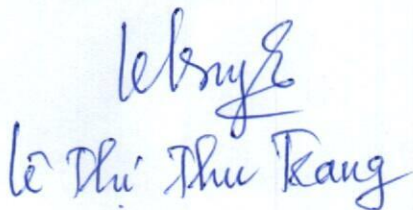 Lê Thị Thu Trang